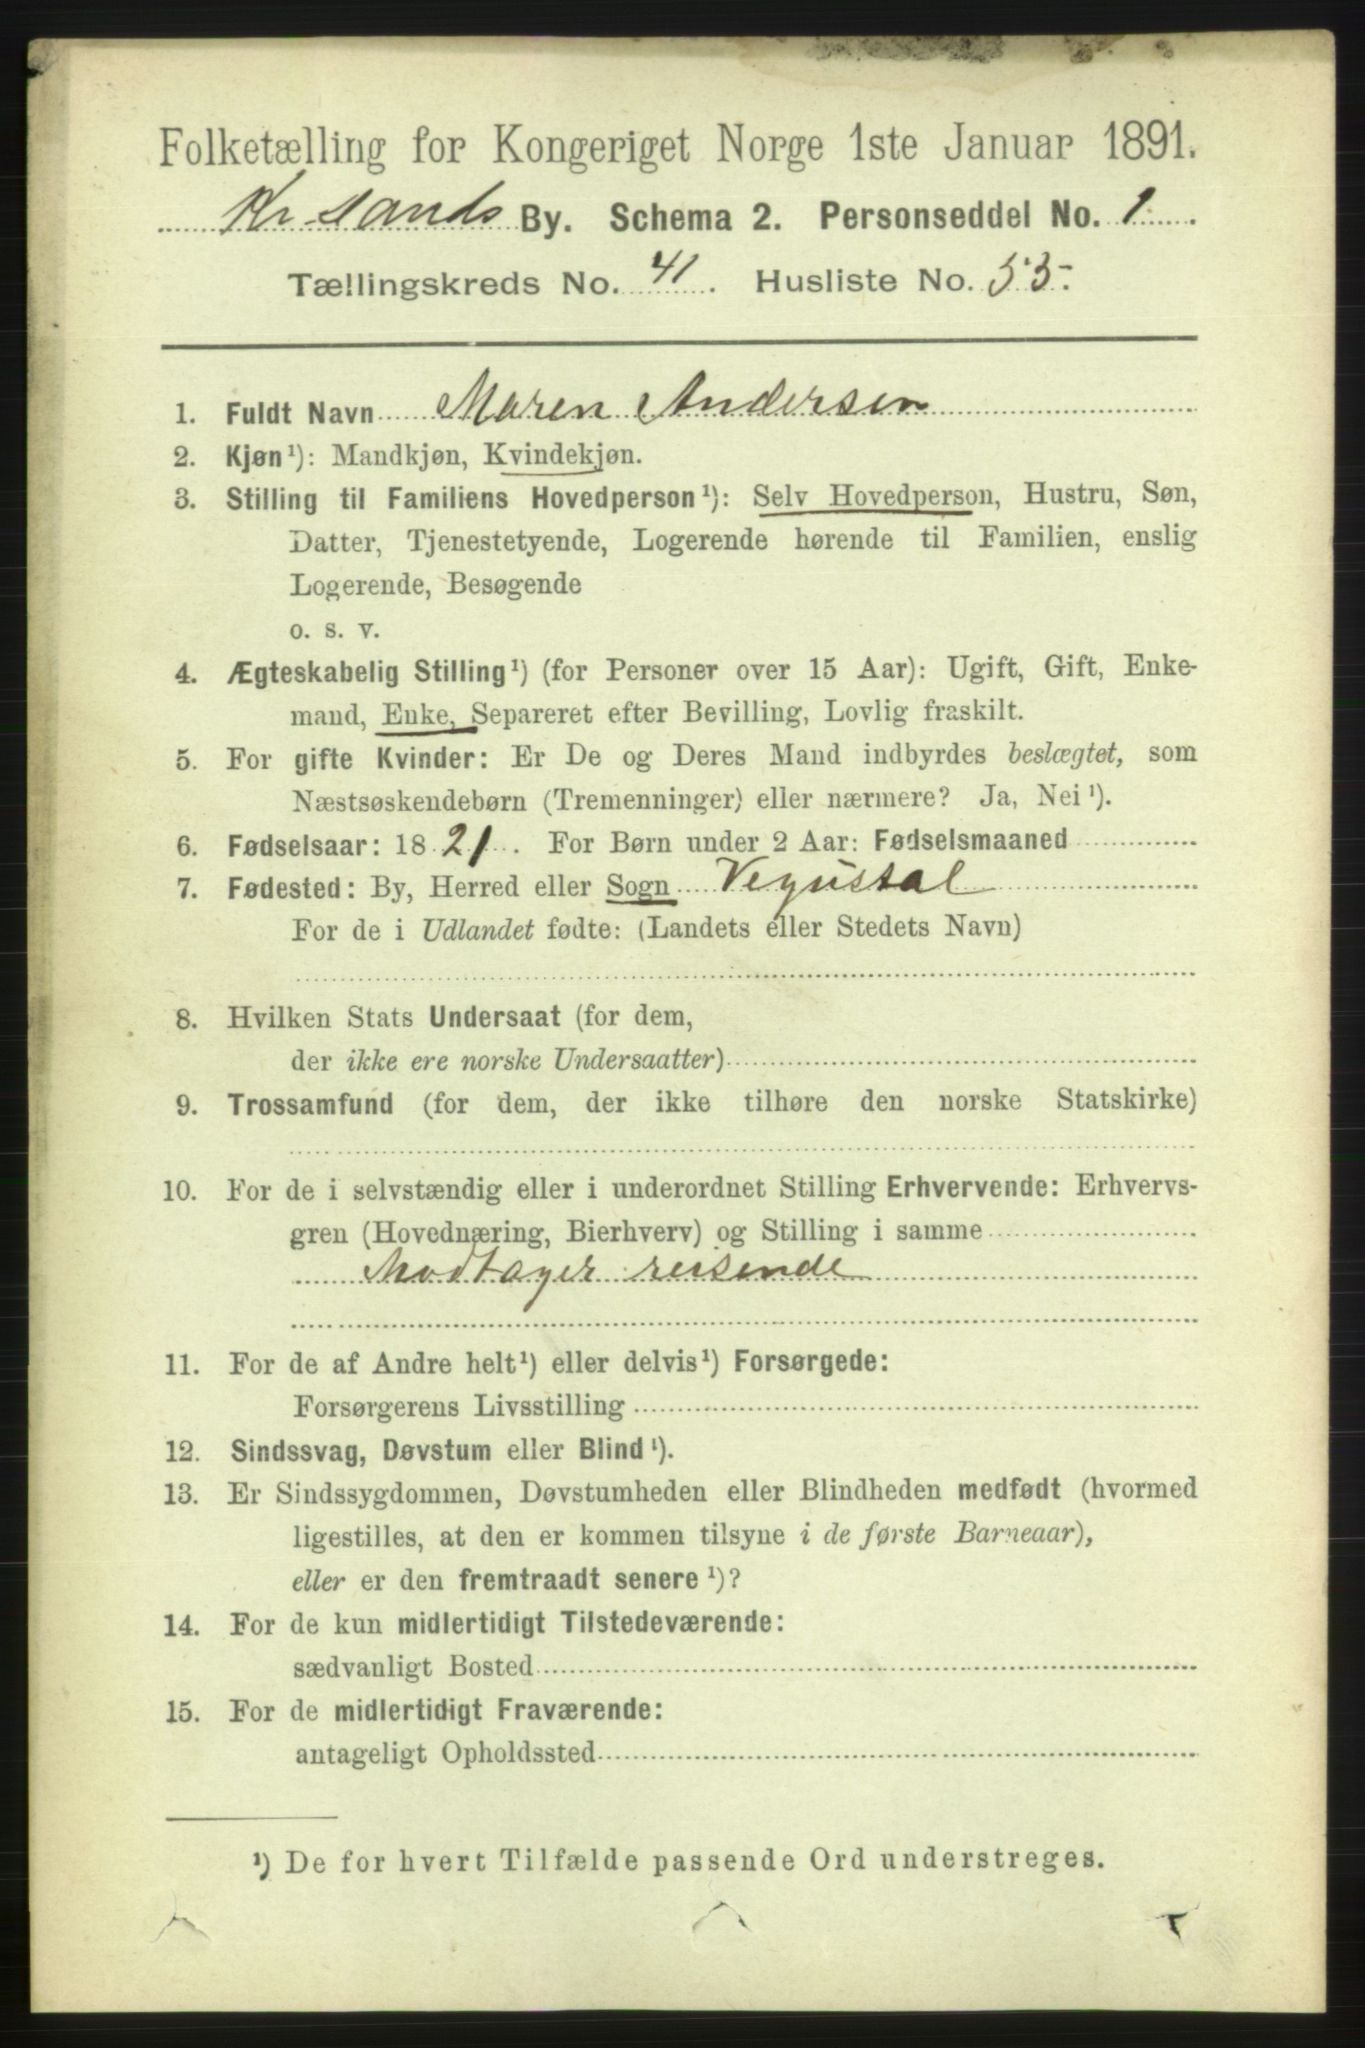 Folketælling for Kongeriget Norge 1ste Januar 1891.
Kr sands By. Schema 2. Personseddel No. 1.
Tællingskreds No. 41. Husliste No. 53.
1. Fuldt Navn Maren Andersen
2. Kjøn¹): Mandkjøn, Kvindekjøn.
3. Stilling til Familiens Hovedperson¹): Selv Hovedperson, Hustru, Søn,
Datter, Tjenestetyende, Logerende hørende til Familien, enslig
Logerende, Besøgende
o. s. v.
4. Ægteskabelig Stilling¹) (for Personer over 15 Aar): Ugift, Gift, Enke-
mand, Enke, Separeret efter Bevilling, Lovlig fraskilt.
5. For gifte Kvinder: Er De og Deres Mand indbyrdes beslægtet, som
Næstsøskendebørn (Tremenninger) eller nærmere? Ja, Nei¹).
6. Fødselsaar: 1821. For Børn under 2 Aar: Fødselsmaaned
7. Fødested: By, Herred eller Sogn Vegustal
For de i Udlandet fødte: (Landets eller Stedets Navn)
8. Hvilken Stats Undersaat (for dem,
der ikke ere norske Undersaatter)
9. Trossamfund (for dem, der ikke tilhøre den norske Statskirke)
10. For de i selvstændig eller i underordnet Stilling Erhvervende: Erhvervs-
gren (Hovednæring, Bierhverv) og Stilling i samme
Modtager reisende
11. For de af Andre helt¹) eller delvis¹) Forsørgede:
Forsørgerens Livsstilling
12. Sindssvag, Døvstum eller Blind¹).
13. Er Sindssygdommen, Døvstumheden eller Blindheden medfødt (hvormed
ligestilles, at den er kommen tilsyne i de første Barneaar),
eller er den fremtraadt senere¹)?
14. For de kun midlertidigt Tilstedeværende:
sædvanligt Bosted
15. For de midlertidigt Fraværende:
antageligt Opholdssted
¹) De for hvert Tilfælde passende Ord understreges.